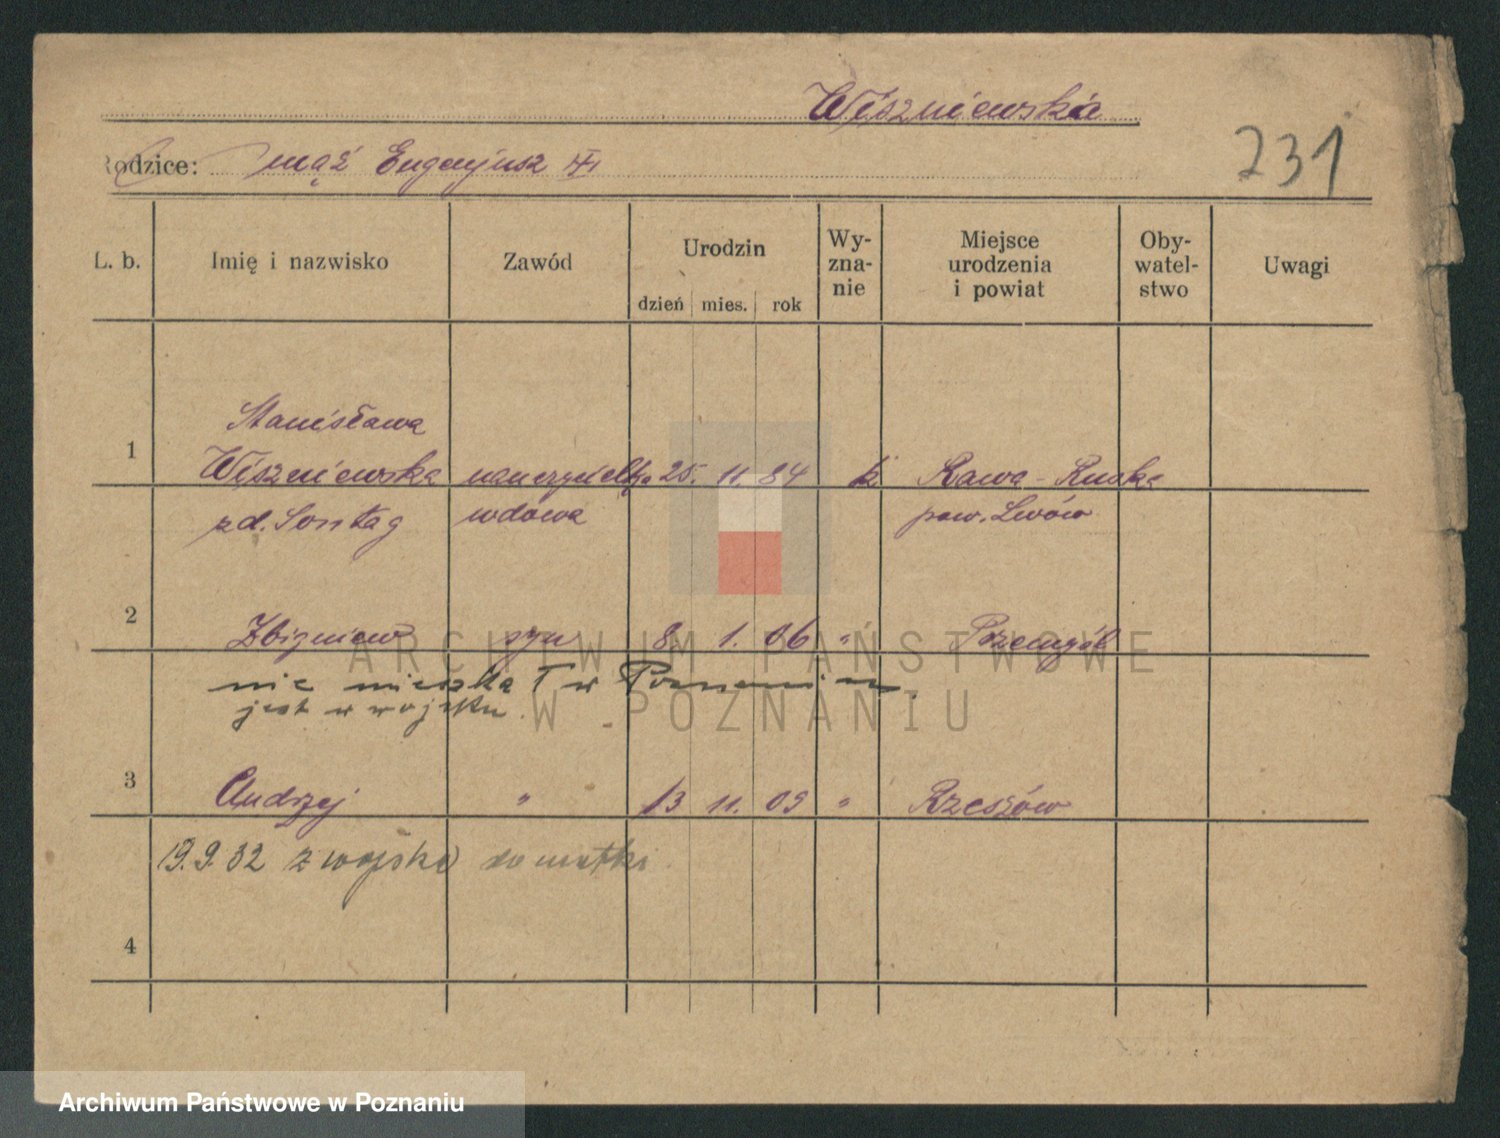 Wiszniewska
Rodzice: mąż Eugenjusz
231
L. b. Imię i nazwisko Zawód Urodzin dzień mies. rok Wy-zna-nie Miejsce urodzenia i powiat Oby-watel-stwo Uwagi
Stanisława
1 Wiszniewska nauczycielka 25. 11. 84 k Rawa-Ruska
zd. Sontag wdowa pow. Lwów
2 Zbigniew syn 8. 1. 06 " Przemyśl
nie mieszka w Poznaniu.
jest w wojsku.
3 Andrzej " 13 11. 09 " Rzeszów
19.9.32 z wojska do matki.
4
ARCHIWUM PAŃSTWOWE
W POZNANIU
Archiwum Państwowe w Poznaniu